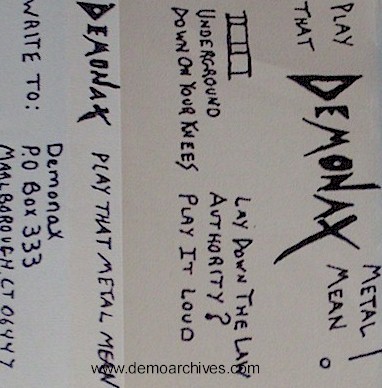 PLAY
THAT
DEMONAX
METAL
MEAN
UNDERGROUND
DOWN ON YOUR KNEES
LAY DOWN THE LAW
AUTHORITY?
PLAY IT LOUD
DEMONAX PLAY THAT METAL MEAN
WRITE TO:
Demonax
P.O BOX 333
MARLBOROUGH, CT 06447
www.demoarchives.com